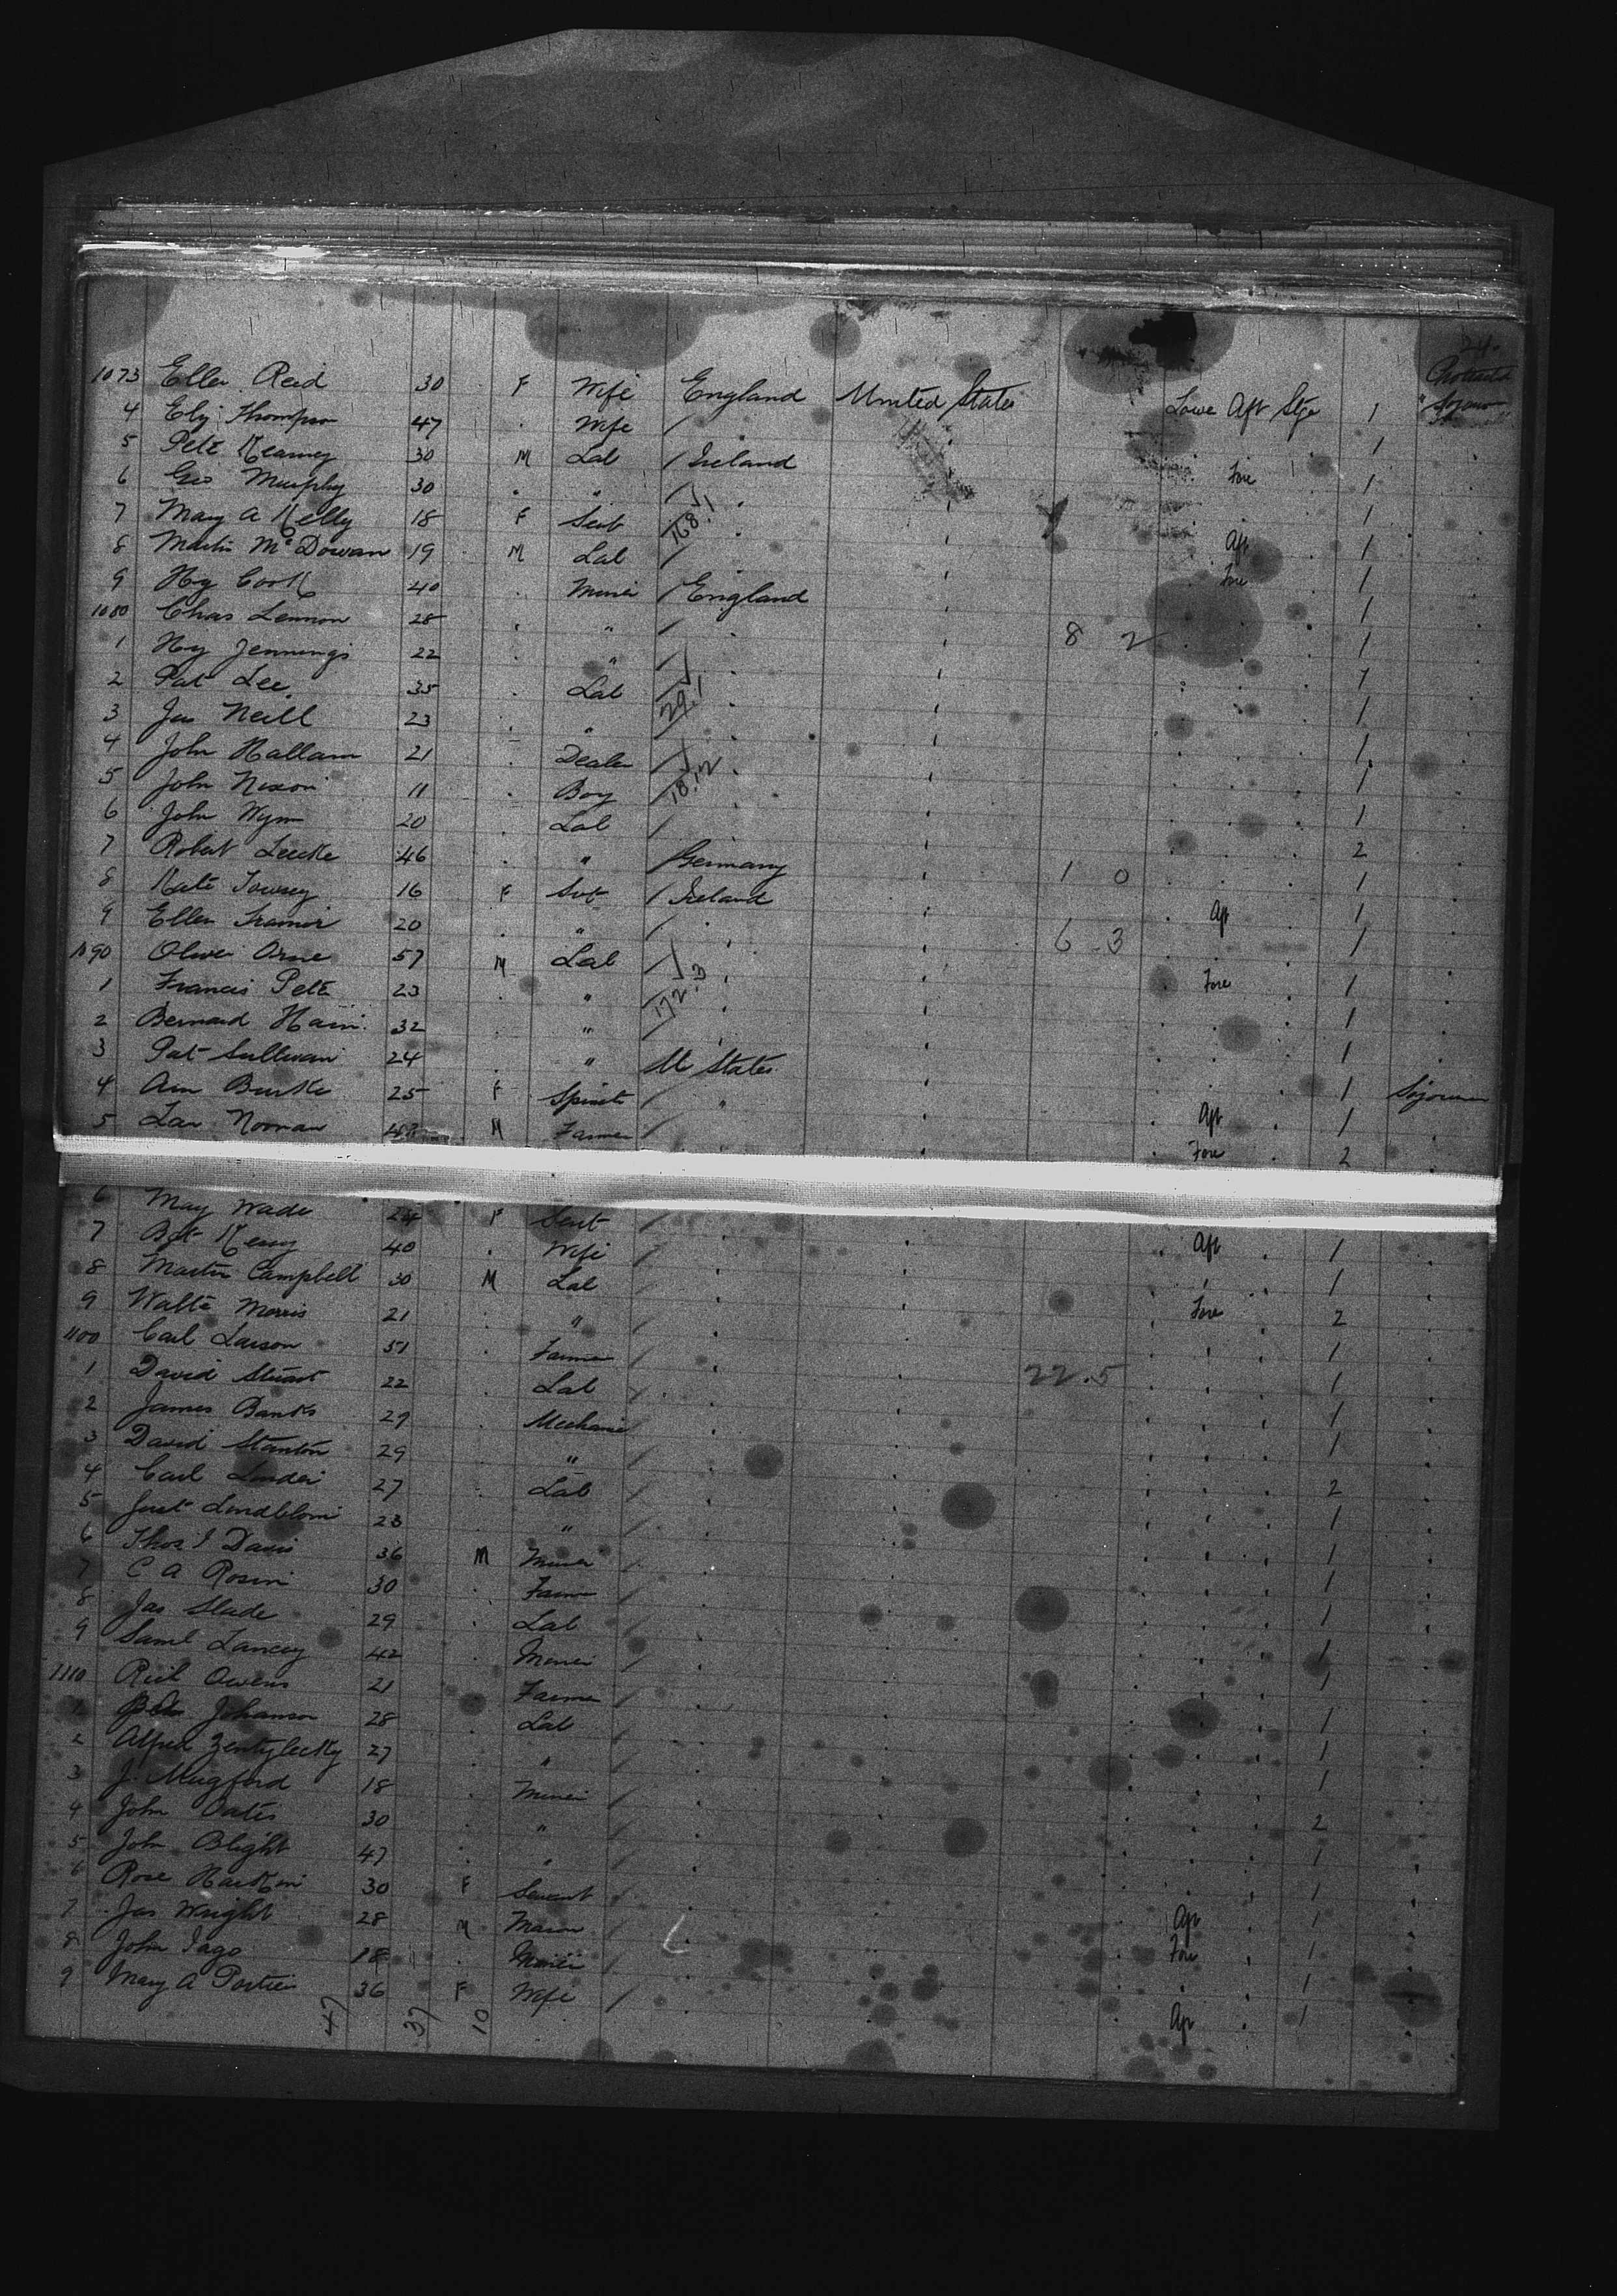 24
Protracted
1073 Ellen Reid 30 F Wife England United States Lowe Aft Stge 1 "Sojourn
4 Eliz Thompson 47 . Wife / 1
5 Pete Kearney 30 M Lab / Ireland Fore 1
6 Geo Murphy 30 . " / 1
7 Mary A Kelly 18 F Sevt Aft 1
8 Martin McDowan 19 M Lab / Fore 1
9 Hy Cook 40 . Miner / England 1
1080 Chas Lennon 28 . " / 8 2 1
1 Hy Jennings 22 . " / 1
2 Pat Lee 35 . Lab / 29.1 1
3 Jas Neill 23 . " 1
4 John Hallam 21 Dealer / 1
5 John Nixon 11 . Boy / 18.12 1
6 John Wynn 20 . Lab / 2
7 Robert Luecke 46 . " / Germany 1 0 1
8 Kate 16 F Svt / Ireland Aft 1
9 Ellen 20 . " / 6 3 1
1090 Oliver 57 M Lab / Fore 1
1 Francis Pete 23 . " 172.3 1
2 Bernard 32 . " / 1
3 Pat Sullivan 24 . " U States 1 Sojourner
4 Ann Burke 25 F Spinst / " Aft 1
5 Lar Noonan M Farmer / Fore 2
6 May Wade 24 F Sevt / Aft 1
7 Bgt 40 . Wife / 1
8 Martin Campbell 30 M Lab / Fore 2
9 Walte Morris 21 . " / 1
1100 Carl Larson 51 . Farmer / 22.5 1
1 David Stuart 22 . Lab / 1
2 James Banks 29 . Mechanic / 1
3 David Stanton 29 " / 2
4 Carl Linder 27 . Lab / 1
5 Just Lindblom 23 . " / 1
6 Thos J Davis 36 M Miner / 1
7 C A Rosin 30 . Farmer / 1
8 Jas Slade 29 . Lab / 1
9 Saml Lancey 42 . Miner / 1
1110 Rich Owens 21 . Farmer / 1
1 Johanson 28 . Lab / 1
2 Alfred 27 . " / 1
3 J. Mugford 18 . Miner / 2
4 John Oates 30 . " / 1
5 John Blight 47 . " / 1
6 Rose 30 F Servant / Aft 1
7 Jas Wright 28 M Mason / Fore 1
8 John Jago 18 . Miner / 1
9 Mary A Portier 36 F Wife / Aft 1
47 37 10